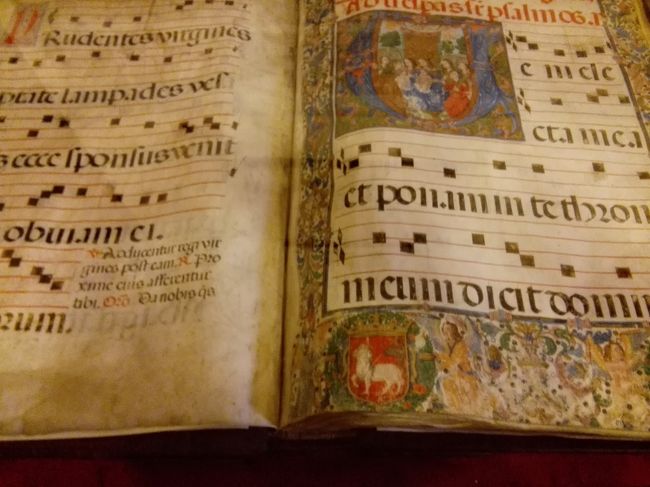 Prudentes virgines
ptate lampades ves
s ecce sponsus venit
obuiam ei.
Adducentur regi vir
gines post eam. R Pro
xime eius afferentur
tibi. Oro Da nobis qs
orum.
psalmos.
Veni ele
cta mea
et ponam in te thron
meum dicit domin